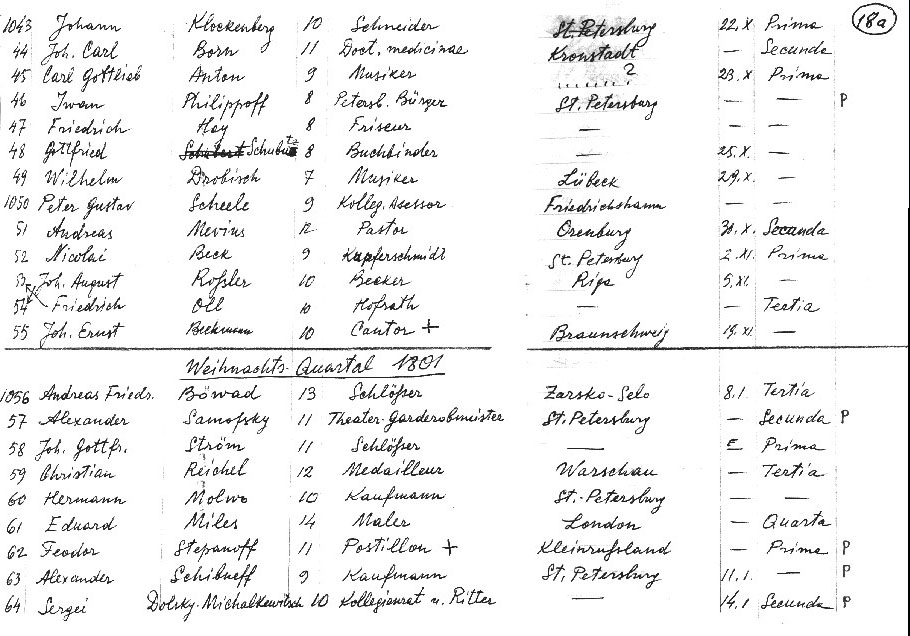 18a
1043 Johann Klockenberg 10 Schneider St. Petersburg 22.X Prima
44 Joh. Carl Born 11 Doct. medicinae Kronstadt — Secunda
45 Carl Gottlieb Anton 9 Musiker ...... ? 23.X Prima
46 Iwan Philippoff 8 Petersb. Bürger St. Petersburg — — P
47 Friedrich Hay 8 Friseur — — —
48 Gottfried Schubert 8 Buchbinder — 25.X. —
49 Wilhelm Drobisch 7 Musiker Lübeck 29.X. —
1050 Peter Gustav Scheele 9 Kolleg. Asessor Friedrichshamn — —
51 Andreas Mevius 12 Pastor Orenburg 30.X. Secunda
52 Nicolai Beck 9 Kupferschmidt St. Petersburg 2.XI. Prima
53 Joh. August Roßler 10 Becker Riga 5.XI. —
54 Friedrich Oll 10 Hofrath — — Tertia
55 Joh. Ernst Beckmann 10 Cantor + Braunschweig 19.XI —
Weihnachts-Quartal 1801
1056 Andreas Friedr. Böwad 13 Schlößer Zarsko-Selo 8.1. Tertia
57 Alexander Samofsky 11 Theater-Garderobmeister St. Petersburg — Secunda P
58 Joh. Gottfr. Ström 11 Schlößer — — Prima
59 Christian Reichel 12 Medailleur Warschau — Tertia
60 Hermann Molwo 10 Kaufmann St.-Petersburg — —
61 Eduard Miles 14 Maler London — Quarta
62 Feodor Stepanoff 11 Postillon + Kleinrußland — Prima P
63 Alexander Schibueff 9 Kaufmann St. Petersburg 11.1. — P
64 Sergei Dolsky-Michalkewitsch 10 Kollegienrat u. Ritter — 14.1 Secunda P